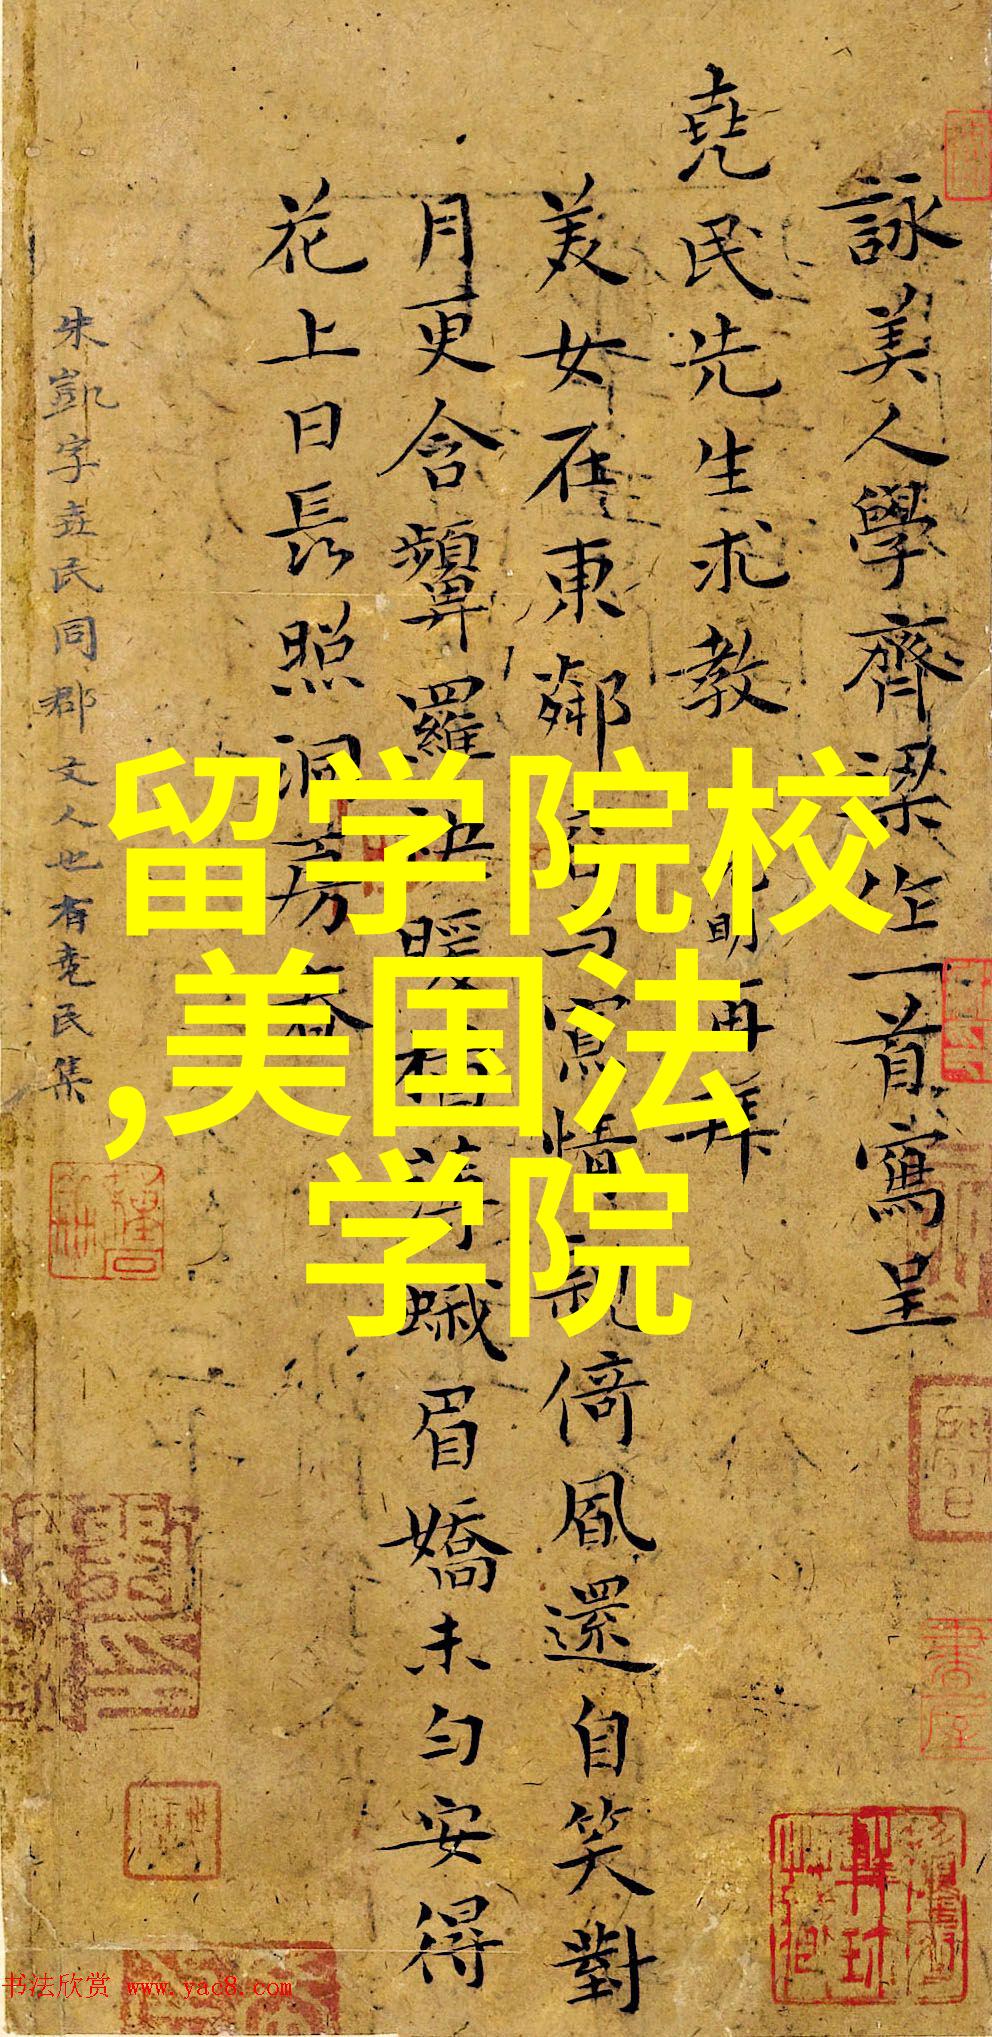 詠美人學齊梁作一首寫呈
堯民先生求教
明再拜
美女在東鄰
寫情
倚風還自笑對
月更含顰羅袂暖
蛾眉嬌未勻安得
花上日長照洞房春
朱凱字堯民同郡文人也有堯民集
留学院校
,美国法
学院
书法欣赏 www.yac8.com